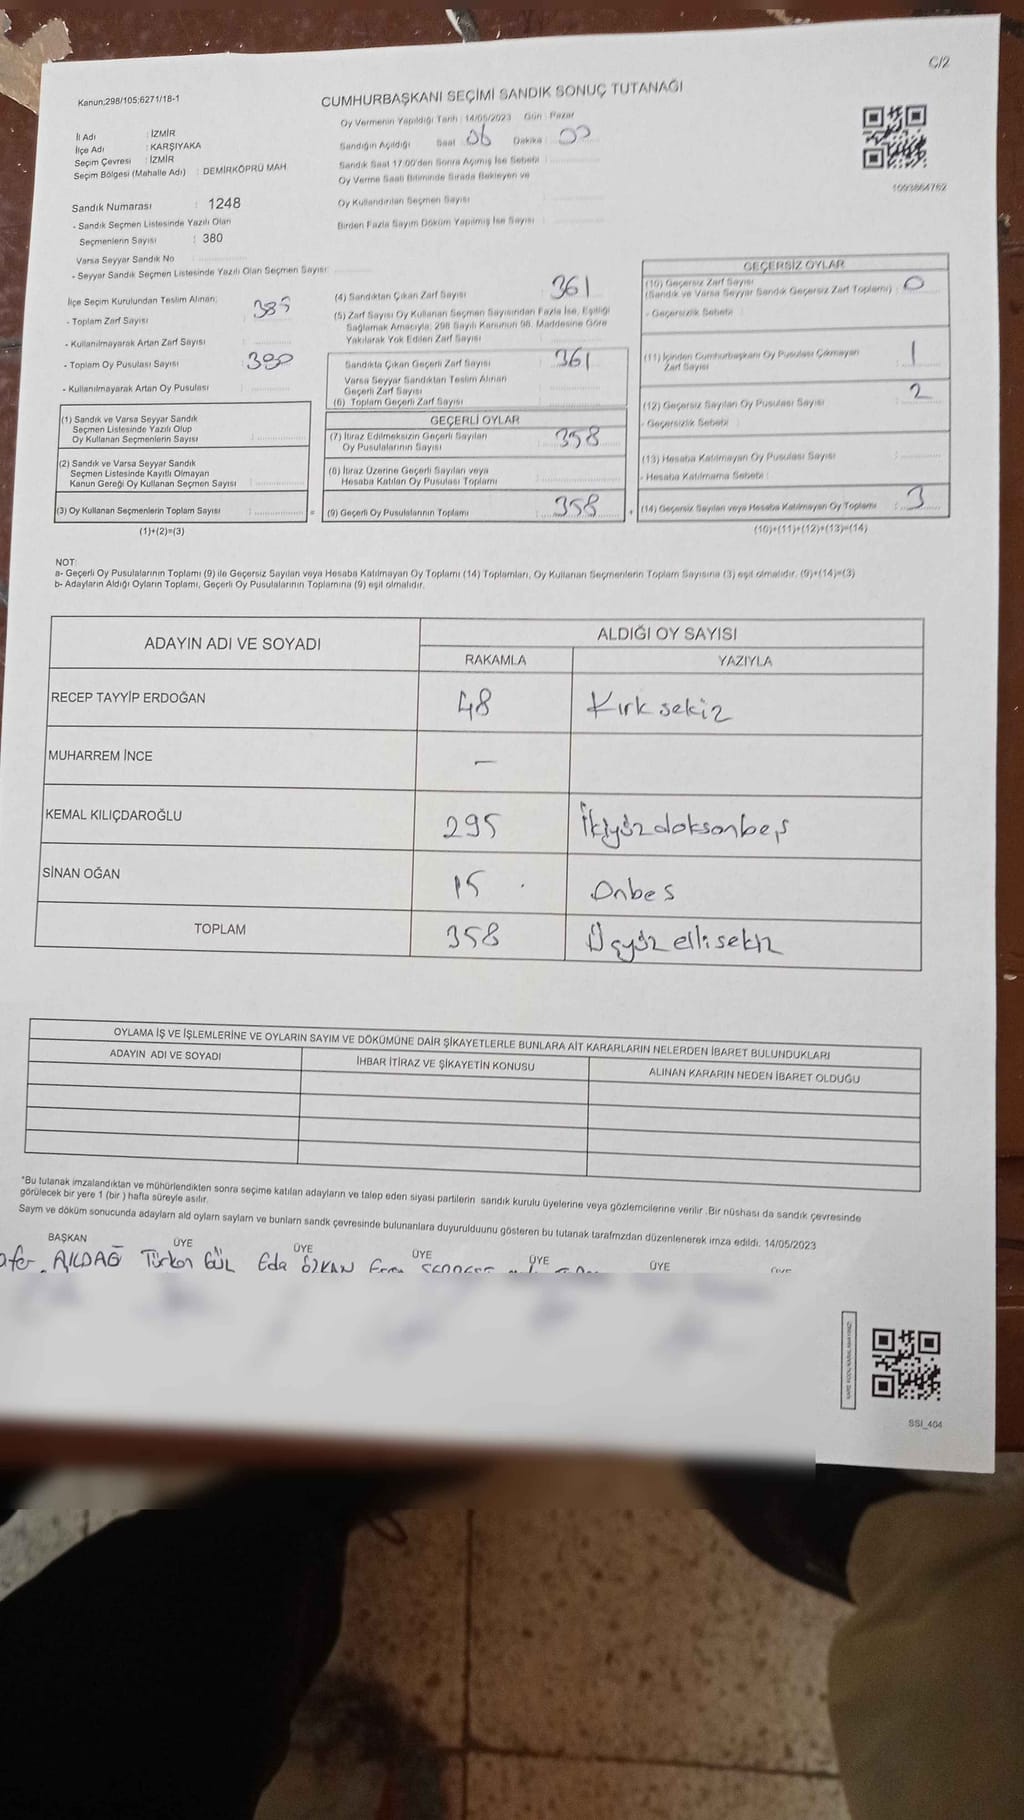 C/2
Kanun;298/105;6271/18-1
CUMHURBAŞKANI SEÇİMİ SANDIK SONUÇ TUTANAĞI
İl Adı : İZMİR
İlçe Adı : KARŞIYAKA
Seçim Çevresi : İZMİR
Seçim Bölgesi (Mahalle Adı) : DEMİRKÖPRÜ MAH
Sandık Numarası : 1248
- Sandık Seçmen Listesinde Yazılı Olan
Seçmenlerin Sayısı : 380
Varsa Seyyar Sandık No
- Seyyar Sandık Seçmen Listesinde Yazılı Olan Seçmen Sayısı:
Oy Vermenin Yapıldığı Tarih : 14/05/2023 Gün : Pazar
Sandığın Açıldığı Saat : 06 Dakika : 00
Sandık Saat 17:00'den Sonra Açılmış İse Sebebi :
Oy Verme Saati Bitiminde Sırada Bekleyen ve
Oy Kullandırılan Seçmen Sayısı
Birden Fazla Sayım Döküm Yapılmış İse Sayısı :
1093864762
İlçe Seçim Kurulundan Teslim Alınan;
- Toplam Zarf Sayısı :
- Kullanılmayarak Artan Zarf Sayısı
- Toplam Oy Pusulası Sayısı : 380
- Kullanılmayarak Artan Oy Pusulası
(1) Sandık ve Varsa Seyyar Sandık
Seçmen Listesinde Yazılı Olup
Oy Kullanan Seçmenlerin Sayısı :
(2) Sandık ve Varsa Seyyar Sandık
Seçmen Listesinde Kayıtlı Olmayan
Kanun Gereği Oy Kullanan Seçmen Sayısı :
(3) Oy Kullanan Seçmenlerin Toplam Sayısı : =
(1)+(2)=(3)
(4) Sandıktan Çıkan Zarf Sayısı : 361
(5) Zarf Sayısı Oy Kullanan Seçmen Sayısından Fazla İse, Eşitliği
Sağlamak Amacıyla; 298 Sayılı Kanunun 98. Maddesine Göre
Yakılarak Yok Edilen Zarf Sayısı
Sandıkta Çıkan Geçerli Zarf Sayısı : 361
Varsa Seyyar Sandıktan Teslim Alınan
Geçerli Zarf Sayısı
(6) Toplam Geçerli Zarf Sayısı
GEÇERLİ OYLAR
(7) İtiraz Edilmeksizin Geçerli Sayılan
Oy Pusulalarının Sayısı : 358
(8) İtiraz Üzerine Geçerli Sayılan veya
Hesaba Katılan Oy Pusulası Toplamı
(9) Geçerli Oy Pusulalarının Toplamı : 358 +
GEÇERSİZ OYLAR
(10) Geçersiz Zarf Sayısı
(Sandık ve Varsa Seyyar Sandık Geçersiz Zarf Toplamı) : 0
- Geçersizlik Sebebi :
(11) İçinden Cumhurbaşkanı Oy Pusulası Çıkmayan
Zarf Sayısı : 1
(12) Geçersiz Sayılan Oy Pusulası Sayısı : 2
- Geçersizlik Sebebi :
(13) Hesaba Katılmayan Oy Pusulası Sayısı :
- Hesaba Katılmama Sebebi :
(14) Geçersiz Sayılan veya Hesaba Katılmayan Oy Toplamı : 3
(10)+(11)+(12)+(13)=(14)
NOT:
a- Geçerli Oy Pusulalarının Toplamı (9) ile Geçersiz Sayılan veya Hesaba Katılmayan Oy Toplamı (14) Toplamları, Oy Kullanan Seçmenlerin Toplam Sayısına (3) eşit olmalıdır. (9)+(14)=(3)
b- Adayların Aldığı Oyların Toplamı, Geçerli Oy Pusulalarının Toplamına (9) eşit olmalıdır.
ADAYIN ADI VE SOYADI ALDIĞI OY SAYISI
RAKAMLA YAZIYLA
RECEP TAYYİP ERDOĞAN 48 Kırk sekiz
MUHARREM İNCE —
KEMAL KILIÇDAROĞLU 295 İkiyüzdoksanbeş
SİNAN OĞAN 15 . Onbes
TOPLAM 358 Üçyüz ellisekiz
OYLAMA İŞ VE İŞLEMLERİNE VE OYLARIN SAYIM VE DÖKÜMÜNE DAİR ŞİKAYETLERLE BUNLARA AİT KARARLARIN NELERDEN İBARET BULUNDUKLARI
ADAYIN ADI VE SOYADI İHBAR İTİRAZ VE ŞİKAYETİN KONUSU ALINAN KARARIN NEDEN İBARET OLDUĞU
*Bu tutanak imzalandıktan ve mühürlendikten sonra seçime katılan adayların ve talep eden siyasi partilerin sandık kurulu üyelerine veya gözlemcilerine verilir .Bir nüshası da sandık çevresinde
görülecek bir yere 1 (bir ) hafta süreyle asılır.
Saym ve döküm sonucunda adaylarn ald oylarn saylarn ve bunlarn sandk çevresinde bulunanlara duyurulduunu gösteren bu tutanak tarafmzdan düzenlenerek imza edildi. 14/05/2023
BAŞKAN ÜYE ÜYE ÜYE ÜYE ÜYE
AKDAĞ Türkan Gül Eda ÖZKAN
SSI_404